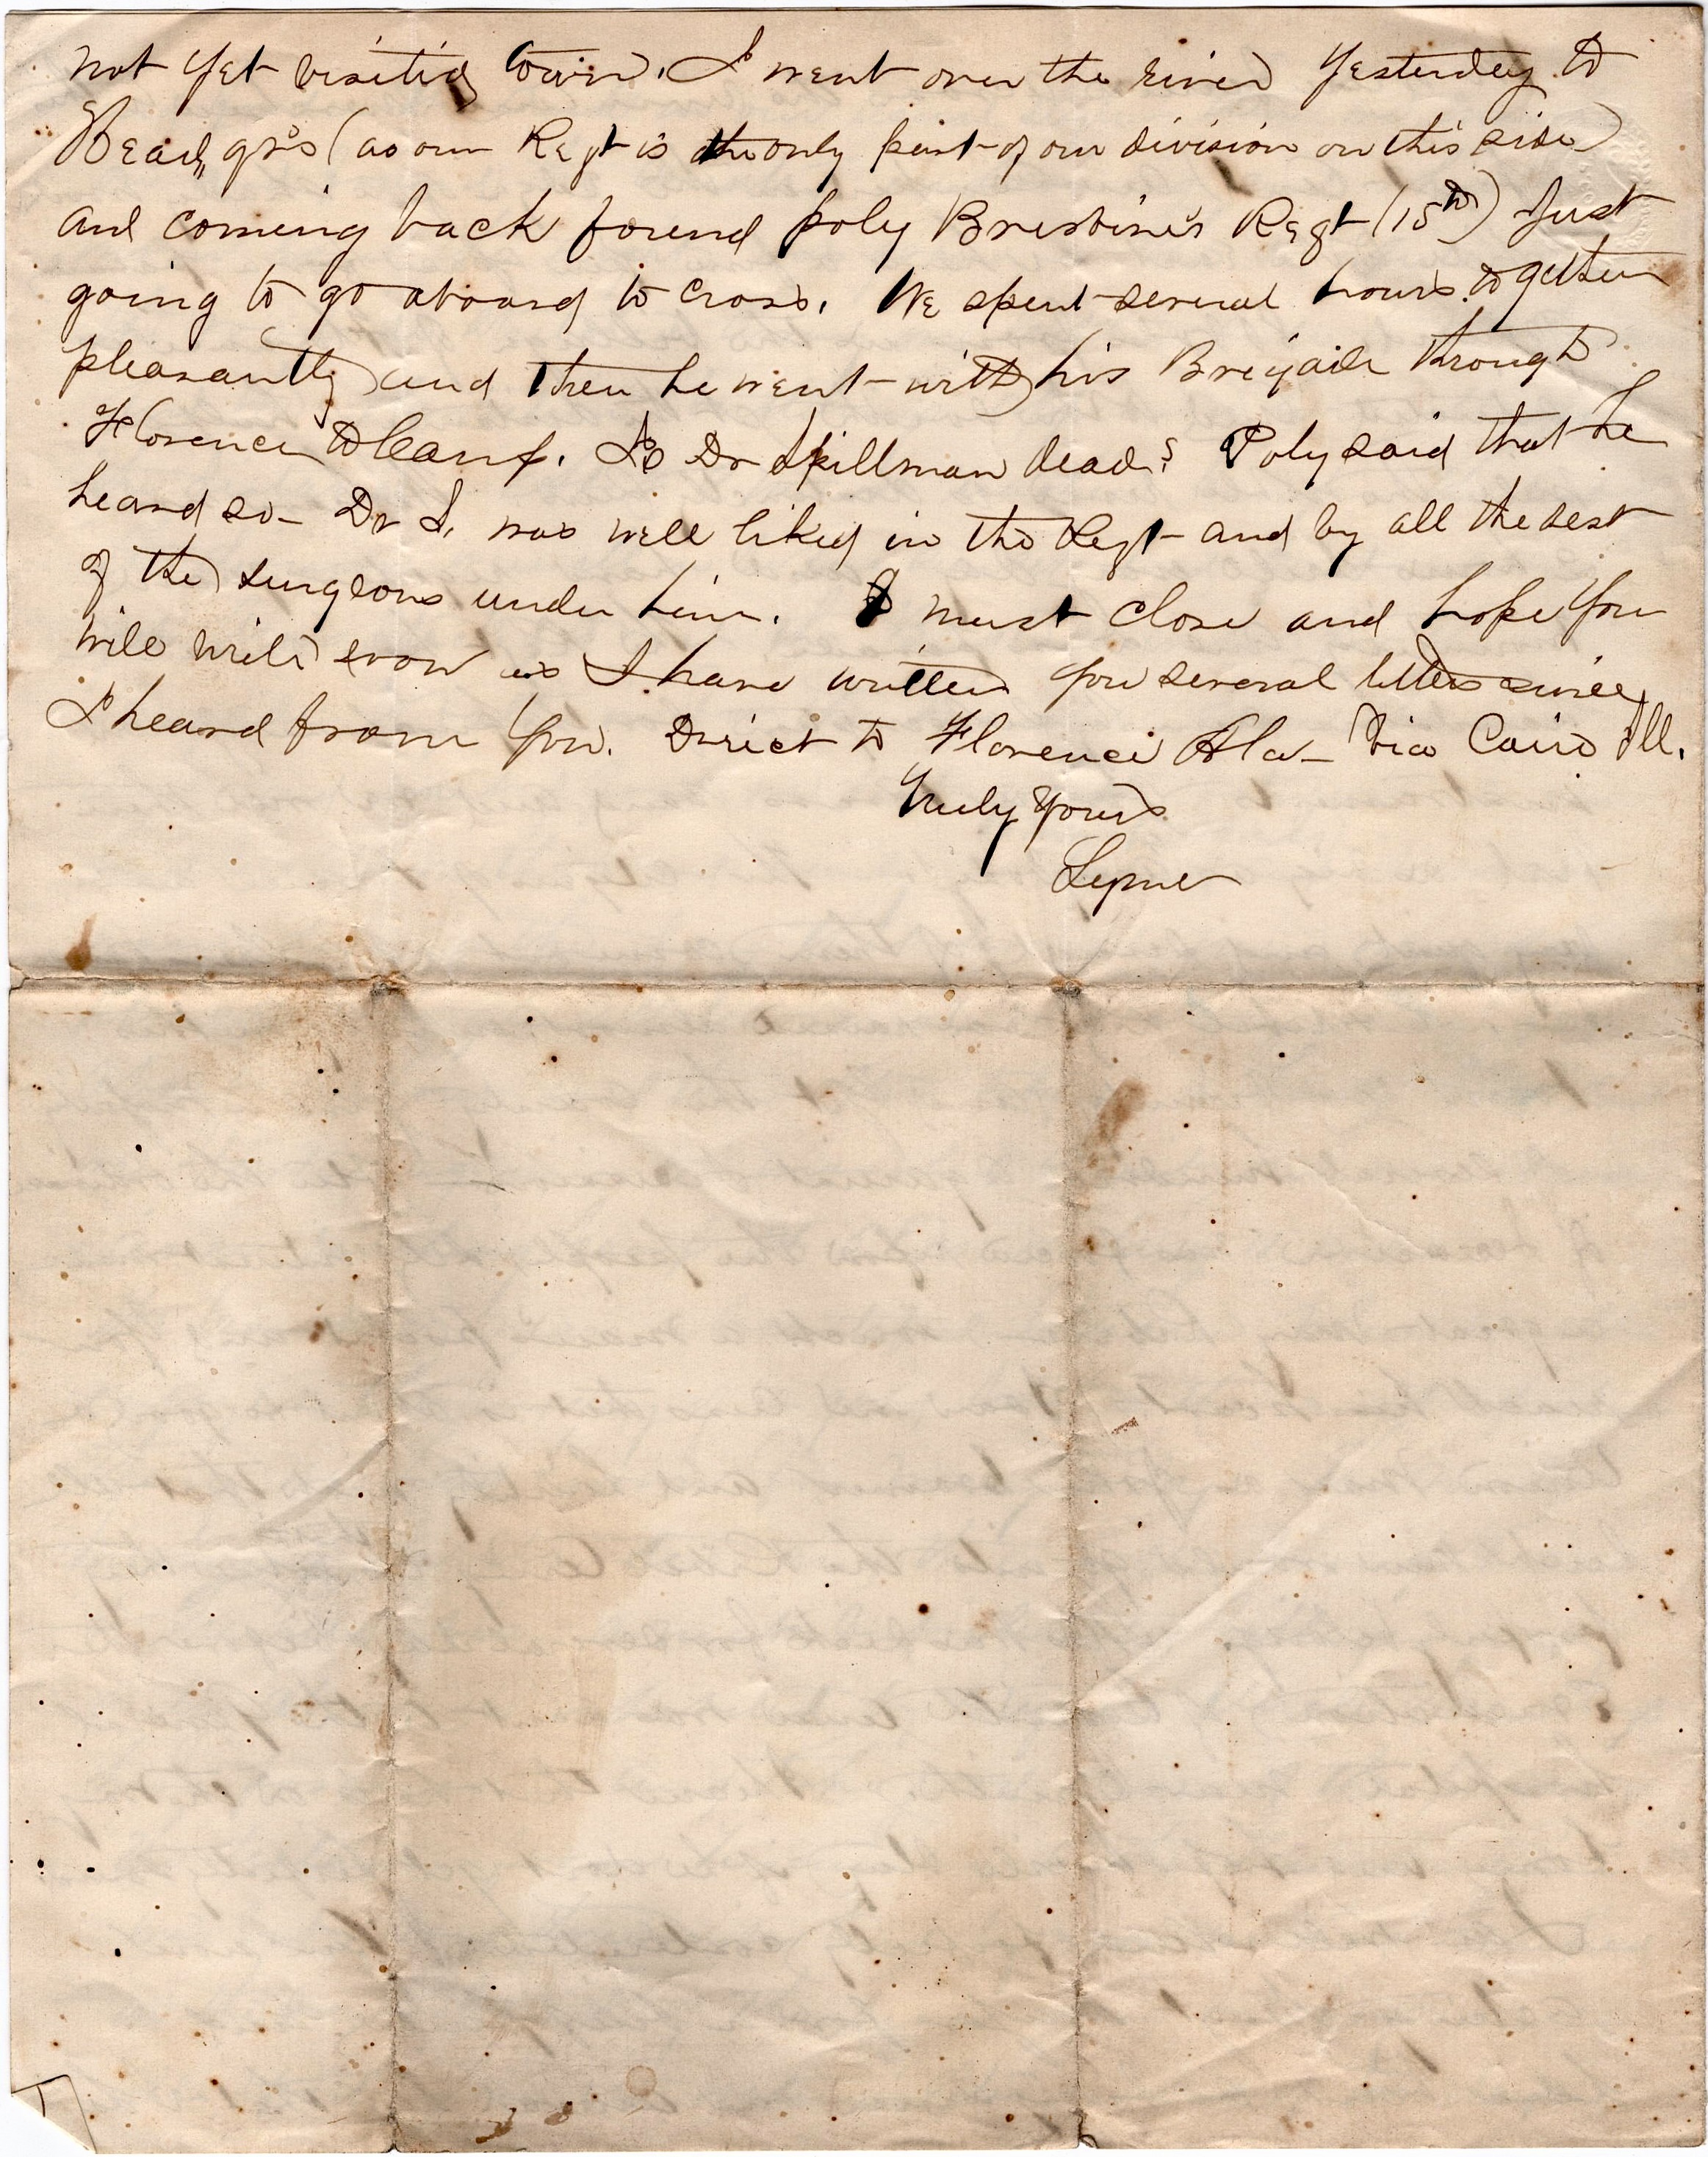 not yet visited town. I went over the river Yesterday to
Head qrs (as our Regt is the only part of our division on this side)
and coming back found Poly Brisbine's Regt (15th) Just
going to go aboard to cross. We spent several hours together
pleasantly and then he went with his Brigade through
Florence to Camp. Is Dr Spillman dead? Poly said that he
heard so - Dr S. was well liked in the Regt and by all the rest
of the surgeons under him. I must close and hope you
will write soon as I have written you several letters since
I heard from You. Direct to Florence Ala - Via Cairo Ill.
Truly Yours